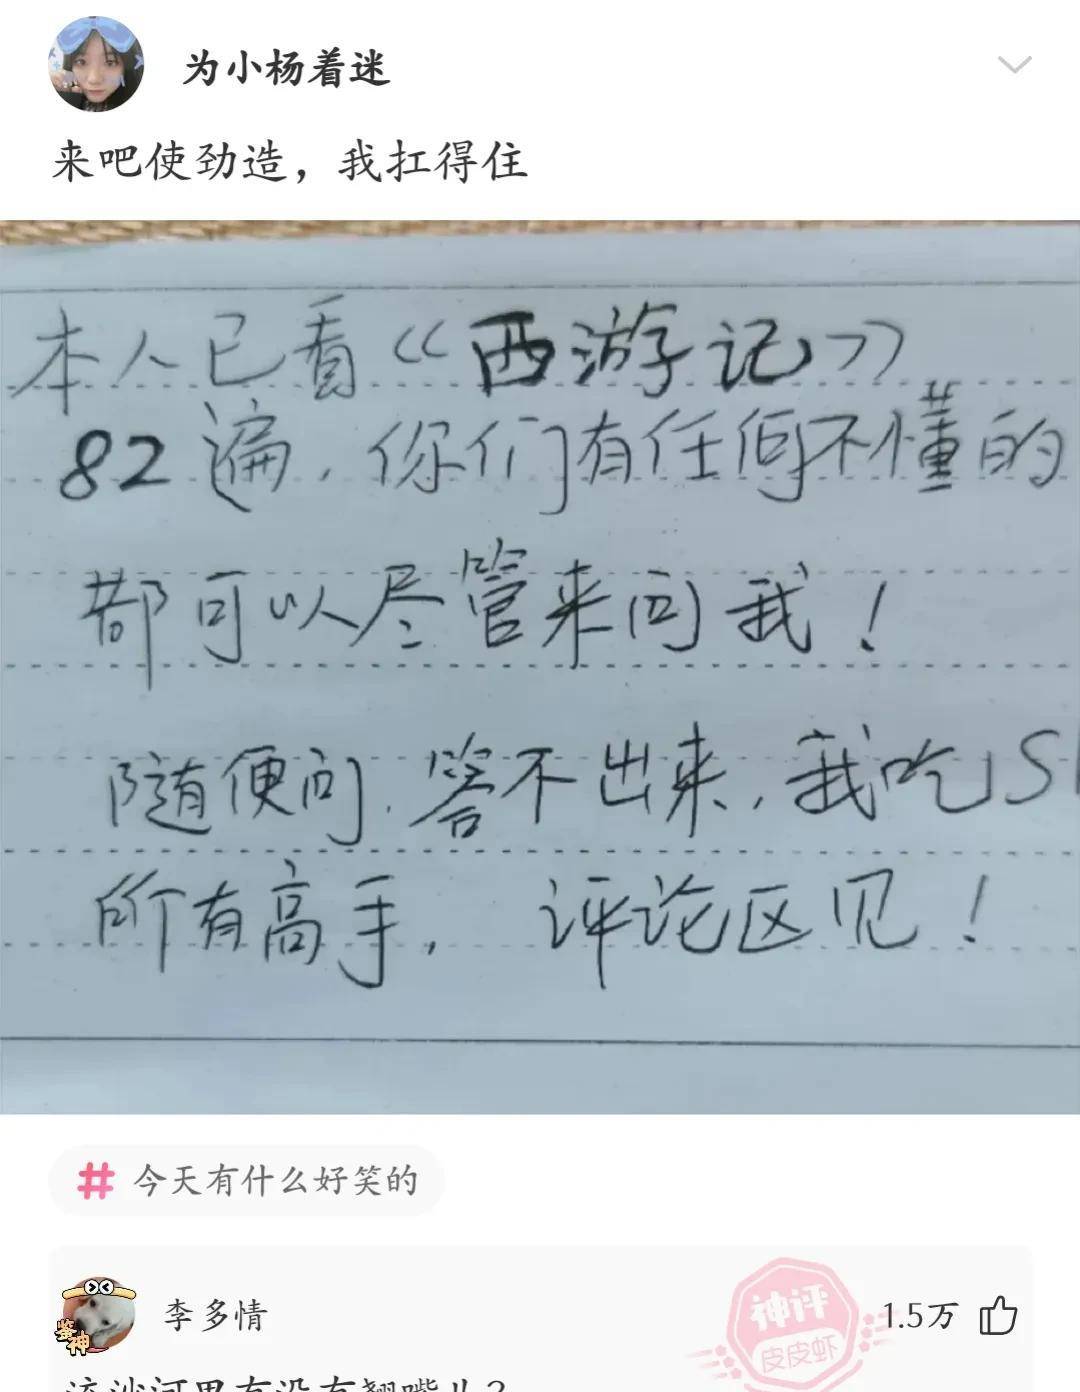 为小杨着迷
来吧使劲造，我扛得住
本人已看《西游记》
82遍，你们有任何不懂的
都可以尽管来问我！
随便问，答不出来，我吃S
所有高手，评论区见！
# 今天有什么好笑的
鉴神
李多情
神评
皮皮虾
1.5万
流沙河里有没有翘嘴儿？